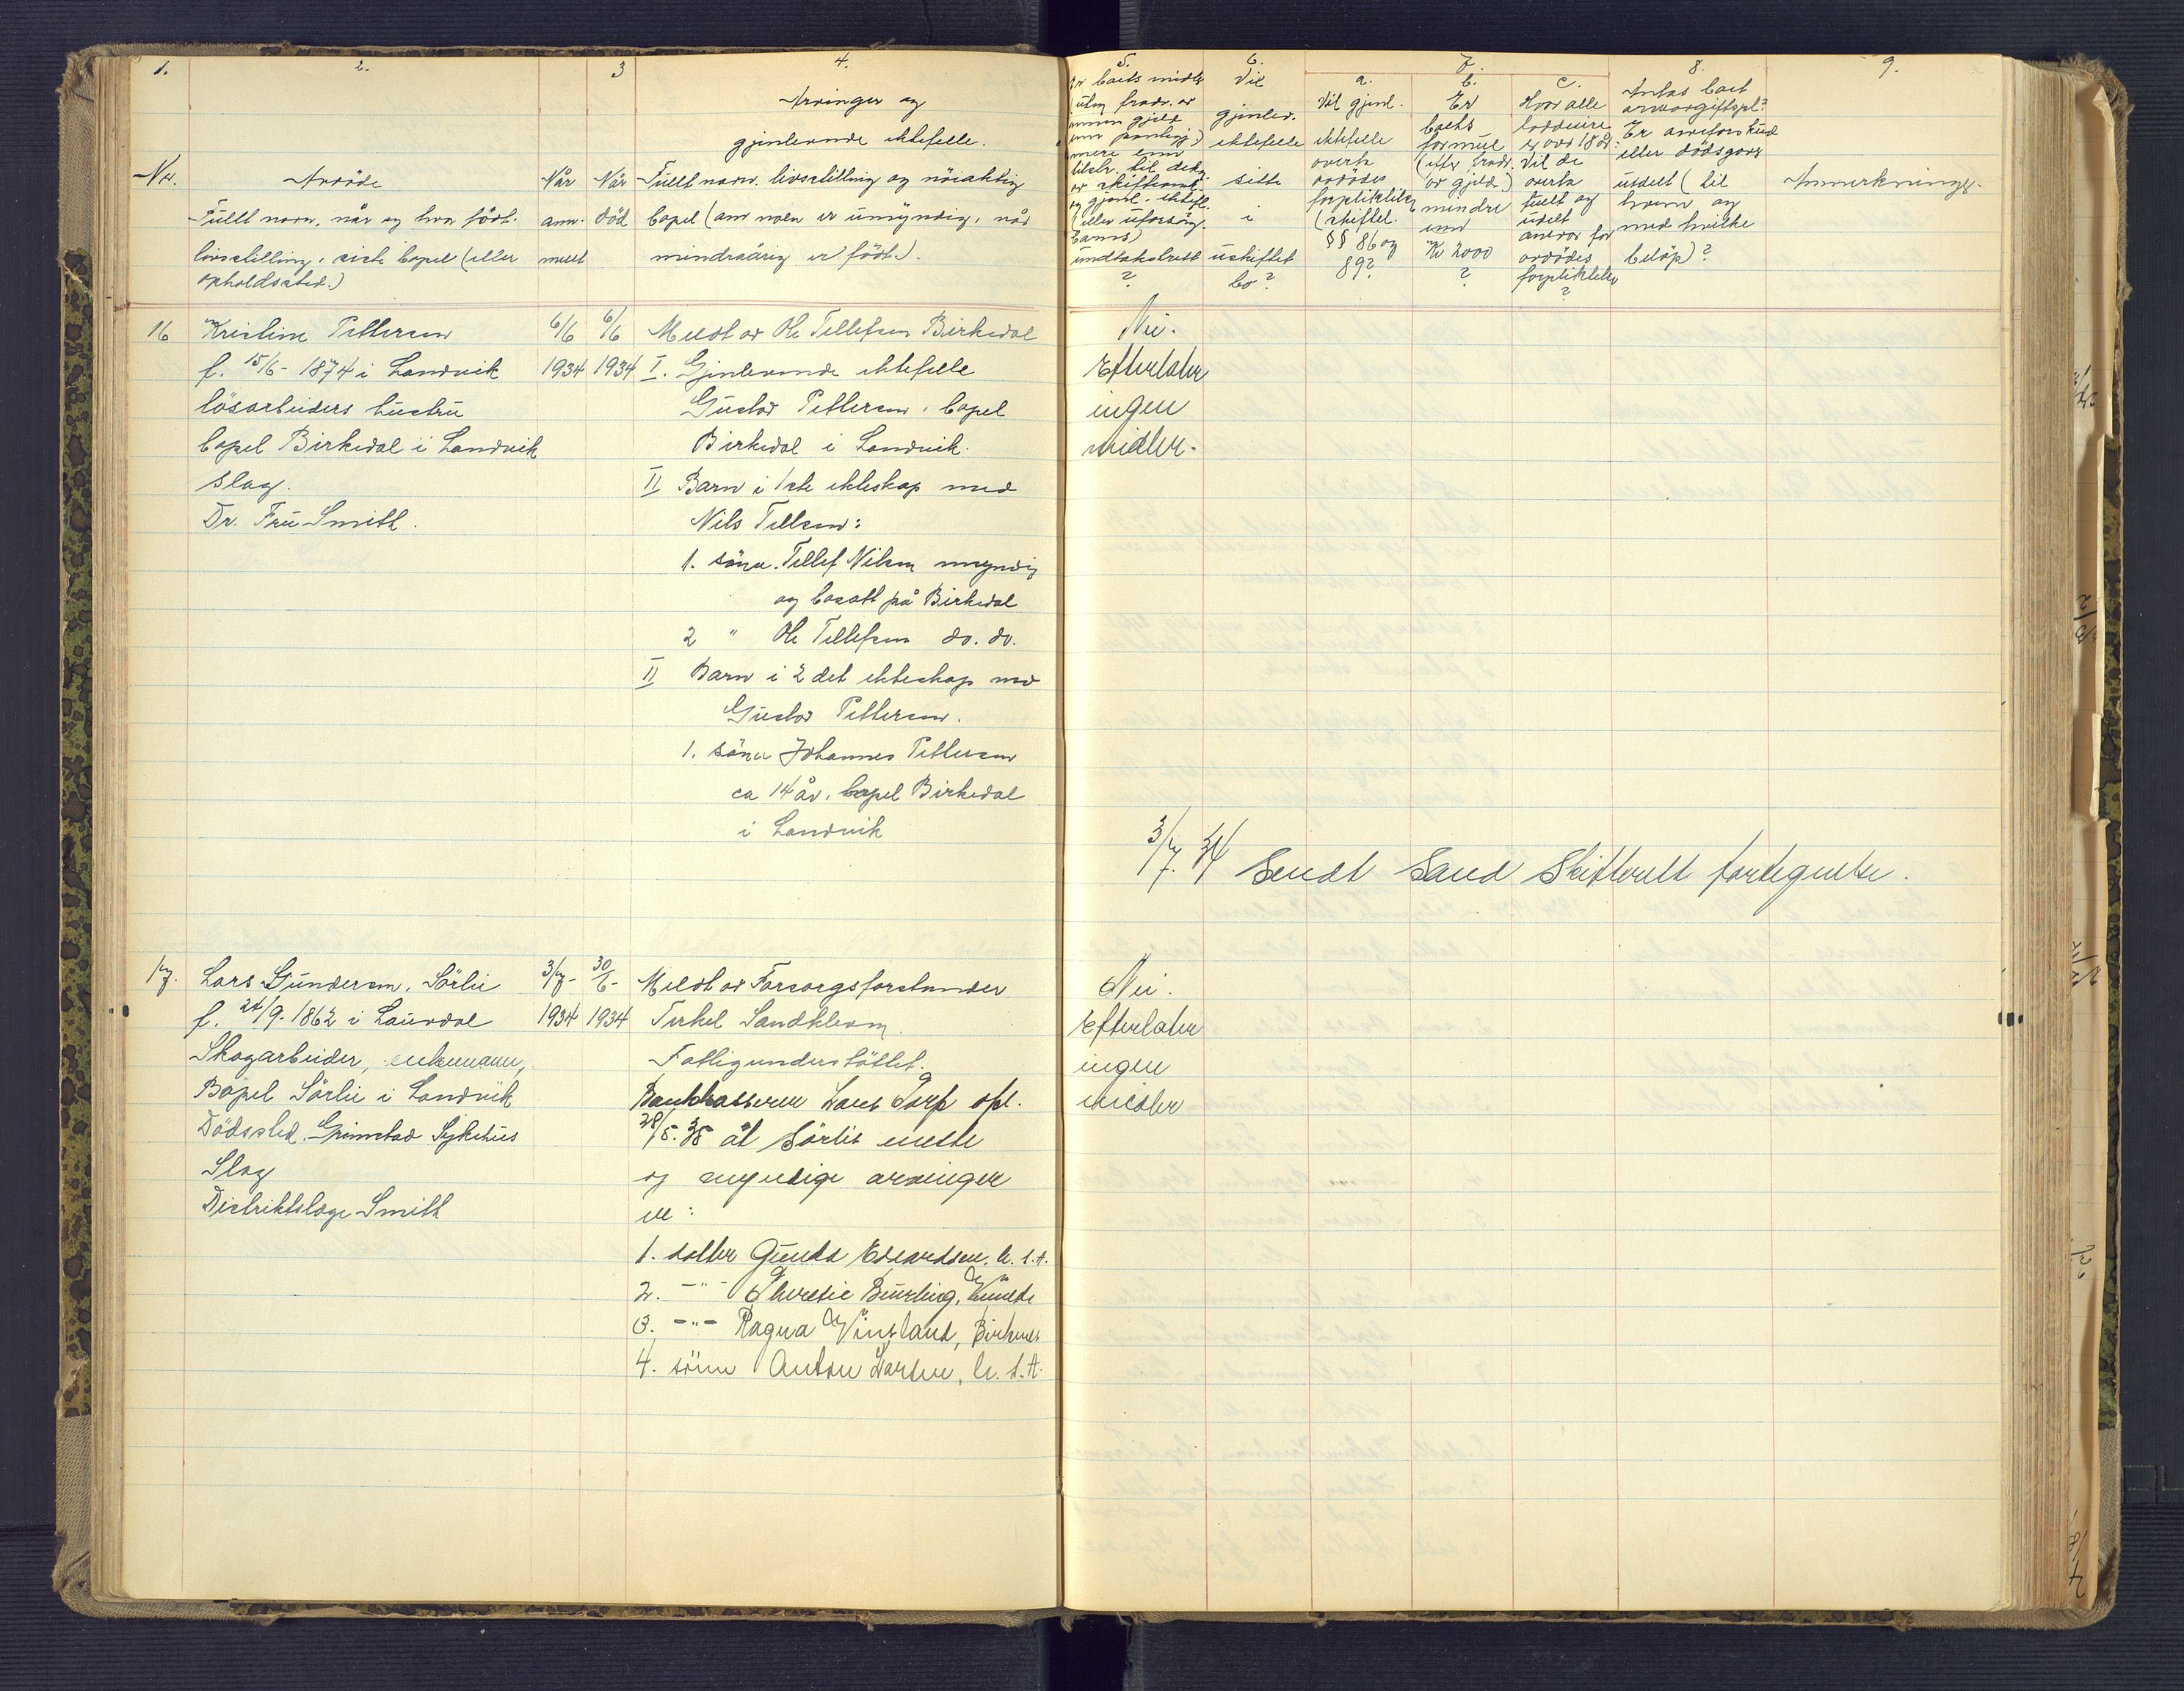 1.
2.
3
4.
Arvinger og
gjenlevende ektefelle.
No.
Avdöde
Når
Når
Fullt navn, livsstilling og nöiaktig
Fullt navn, når og hvor födt.
an-
död
bopel (om noen er umyndig, når
livsstilling, siste bopel (eller
meldt
mindreårig er födt).
opholdssted.)
16
Kristine Pettersen
6/6
6/6
Meldt av Ole Tellefsen Birkedal
f. 15/6- 1874 i Landvik
1934
1934
I. Gjenlevende ektefelle
lösarbeiders hustru
Gustav Pettersen, bopel
bopel Birkedal i Landvik
Birkedal i Landvik.
Slag.
II Barn i 1ste ekteskap med
Dr. Fru Smith.
Nils Tellesen:
1. sönn. Tellef Nilsen myndig
og bosatt på Birkedal
2 " Ole Tellefsen do. do.
II Barn i 2 det ekteskap med
Gustav Pettersen.
1. sönn Johannes Pettersen
ca 14 år, bopel Birkedal
i Landvik
17.
Lars Gundersen, Sörlie
3/7-
30/6-
Meldt av Forsorgsforstander
f. 24/9- 1862 i Laurdal
1934
1934
Terkel Sandkleiv.
Skogarbeider, enkemann,
Fattigunderstöttet.
Bopel Sörlie i Landvik
Bankkasserer Lars Torp opl.
Dödssted. Grimstad Sykehus
28/5.35 at Sörlis eneste
Slag
og myndige arvinger
Distriktslæge Smith
er:
1. datter Gunda Edvardsen, U.S.A.
2. -"- Therese Burling,
3. -"- Ragna Vinsland, Birkenes
4. sönn Anton Larsen, U.S.A.
5.
6.
7.
8.
9.
Er boets midler
uten fradr. av
annen gjeld
enn pantegj.)
mere enn
tilstr. til dekn.
av skifteomk.
og gjenl. ektefl.
(eller uforsörg.
barns)
undtaksrett
?
Vil
gjenlev.
ektefelle
sitte
i
uskiftet
bo?
a.
Vil gjenl.
ektefelle
overta
avdödes
forpliktelser
(skiftel.
§§ 86 og
89?
b.
Er
boets
formue
(efter fradr.
av gjeld.)
mindre
enn
Kr 2000
?
c.
Hvor alle
loddeiere
er over 18 år:
Vil de
overta
fullt og
udelt
ansvar for
avdödes
forpliktelser
?
Antas boet
arveavgiftspl.?
Er arveforskudd
eller dödsgave
utdelt (til
hvem og
med hvilke
belöp)?
Anmerkninger.
Nei.
Efterlater
ingen
midler.
3/7. 34 Sendt Sand Skifterett fortegnelse.
Nei.
Efterlater
ingen
midler